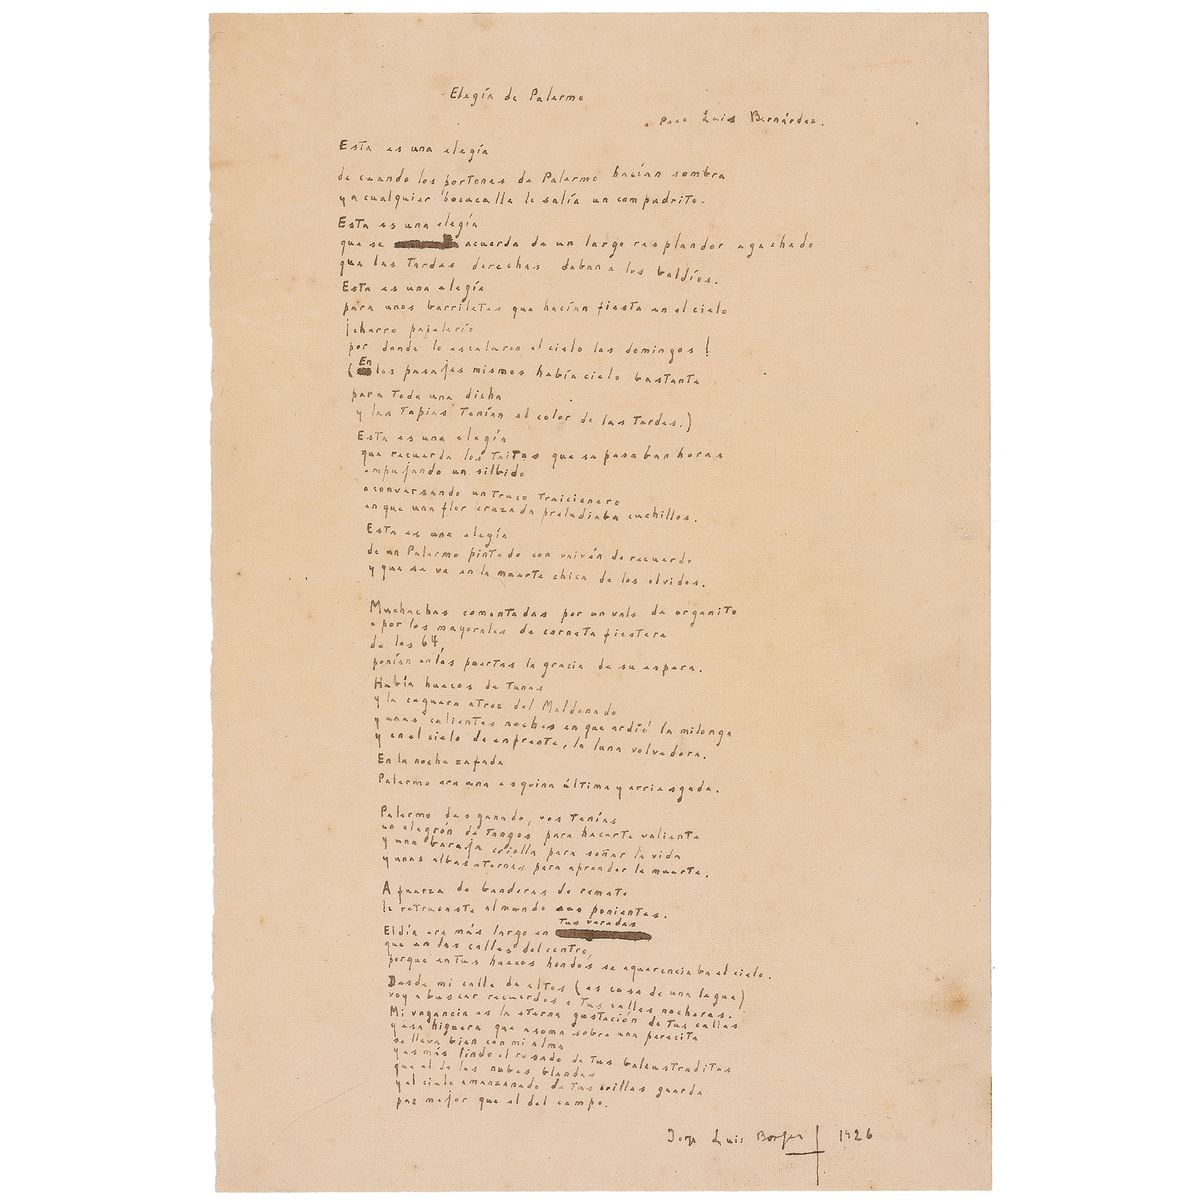 Elegía de Palermo
a Paco Luis Bernárdez.
Esta es una elegía
de cuando los portones de Palermo hacían sombra
y a cualquier bocacalle le salía un compadrito.
Esta es una elegía
que se acuerda de un largo resplandor agachado
que las tardes derechas daban a los baldíos.
Esta es una elegía
para unos barriletes que hacían fiesta en el cielo
¡charro papelerío
por donde le escalaron el cielo los domingos!
(En los pasajes mismos había cielo bastante
para toda una dicha
y las tapias tenían el color de las tardes.)
Esta es una elegía
que recuerda los taitas que se pasaban horas
empujando un silbido
o conversando un truco traicionero
en que una flor cruzada preludiaba cuchillos.
Esta es una elegía
de un Palermo pintado con vaivén de recuerdo
y que se va en la muerte chica de los olvidos.
Muchachas comentadas por un vals de organito
o por los mayorales de corneta fiestera
de los 64,
ponían en las puertas la gracia de su espera.
Había huecos de tunas
y la ceguera atroz del Maldonado
y unas calientes noches en que ardió la milonga
y en el cielo de enfrente, la luna volvedora.
En la noche zafada
Palermo era una esquina última y arriesgada.
Palermo desganado, vos tenías
un alegrón de tangos para hacerte valiente
y una baraja criolla para soñar la vida
y unas albas eternas para aprender la muerte.
A fuerza de banderas de remate
le retrucaste al mundo sus ponientes.
El día era más largo en tus veredas
que en las calles del centro,
porque en tus huecos hondos se aquerenciaba el cielo.
Desde mi calle de altos (es cosa de una legua)
voy a buscar recuerdos a tus calles nocheras.
Mi vagancia es la eterna gustación de tus calles
y esa higuera que asoma sobre una parecita
se lleva bien con mi alma
y es más lindo el rosado de tus balaustraditas
que el de las nubes blandas
y el cielo amanzanado de tus orillas guarda
paz mejor que el del campo.
Jorge Luis Borges 1926